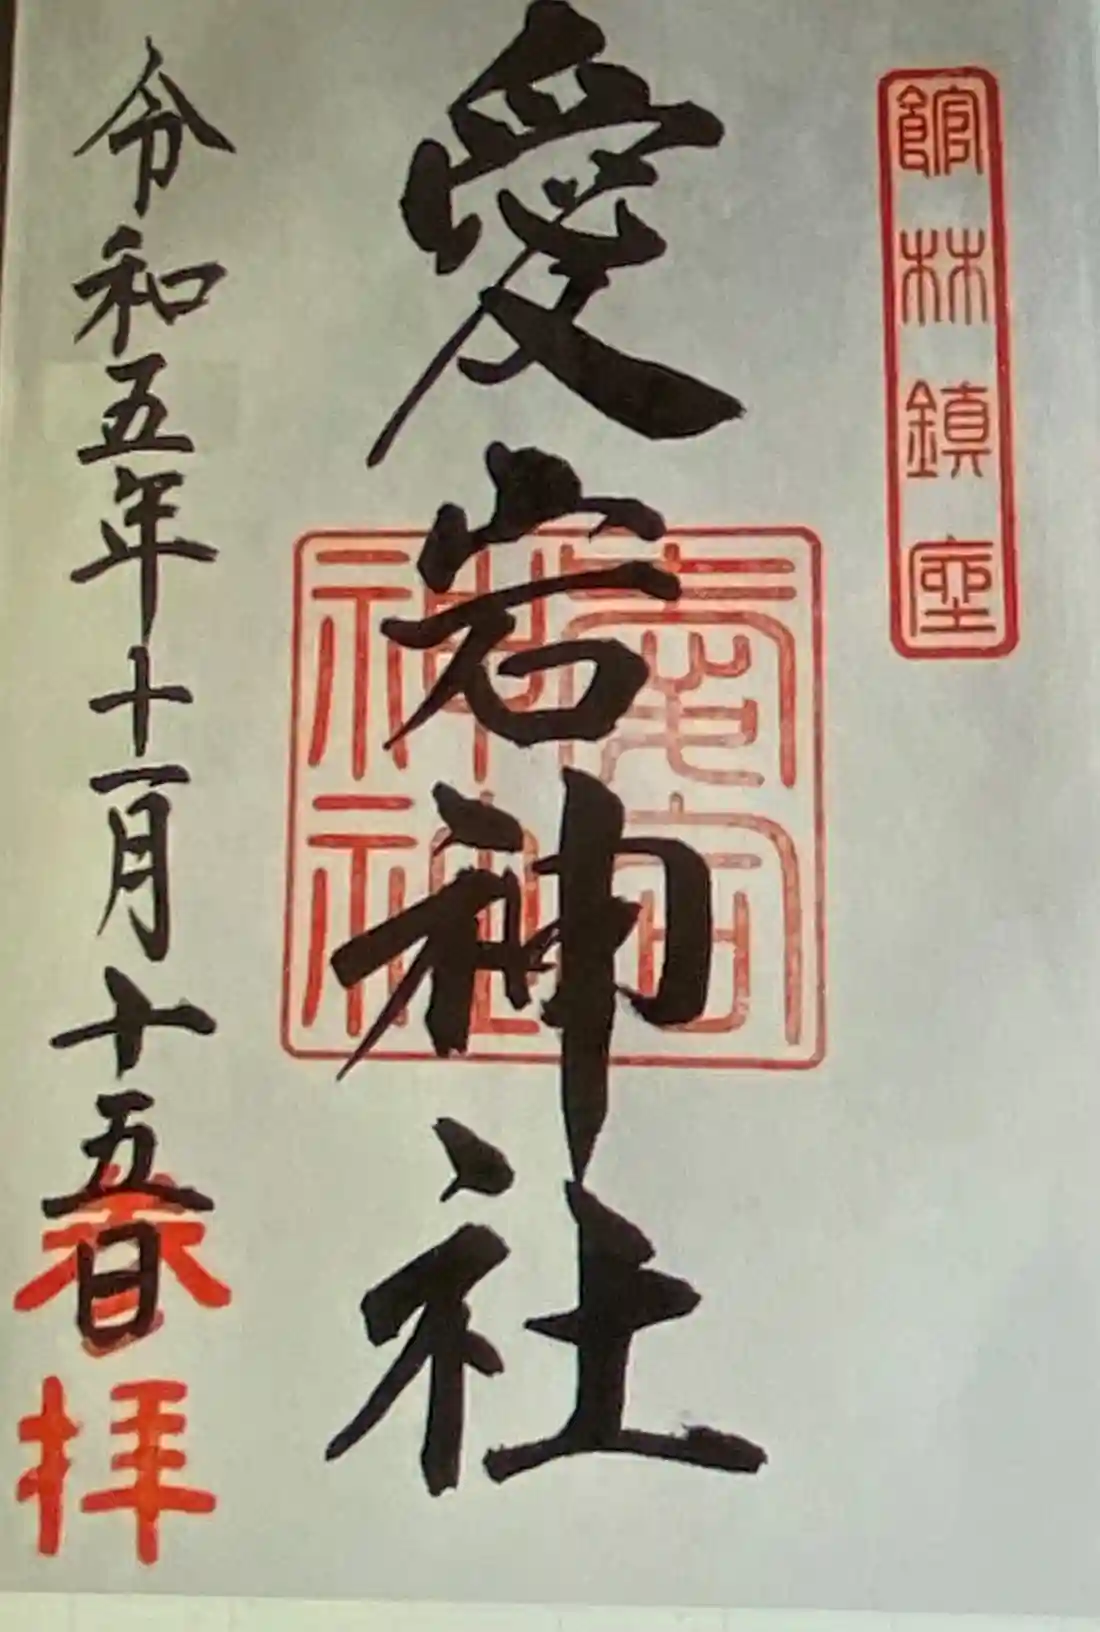 館林鎮座
愛宕神社
愛岩神社
令和五年十一月十五日
奉拝